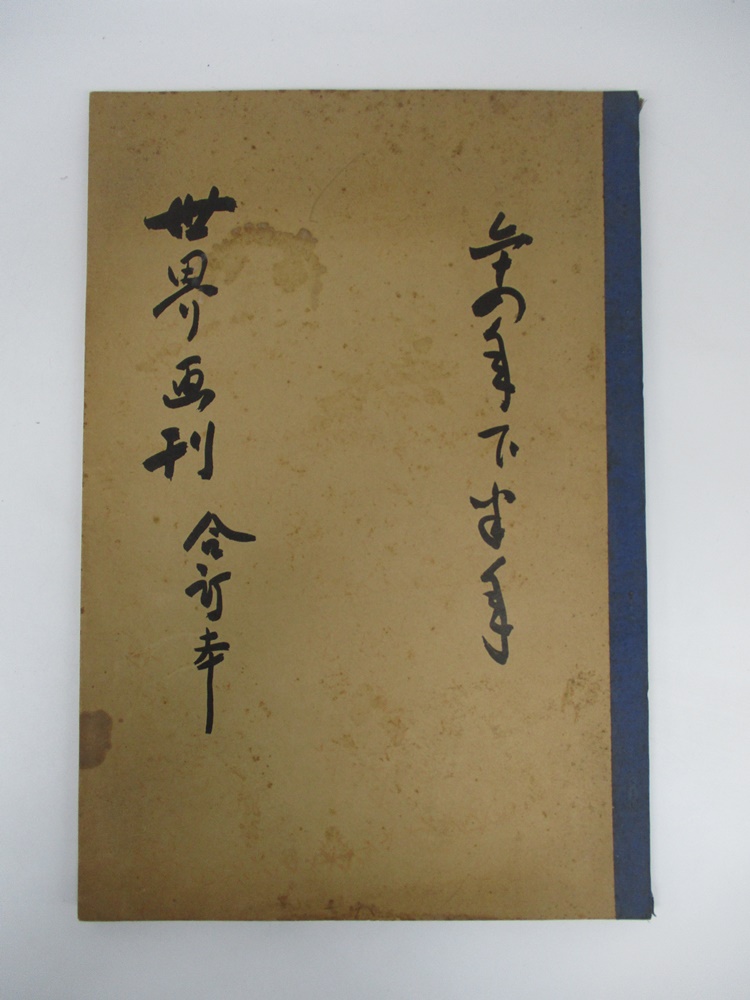 年下半年
世界画刊 合订本